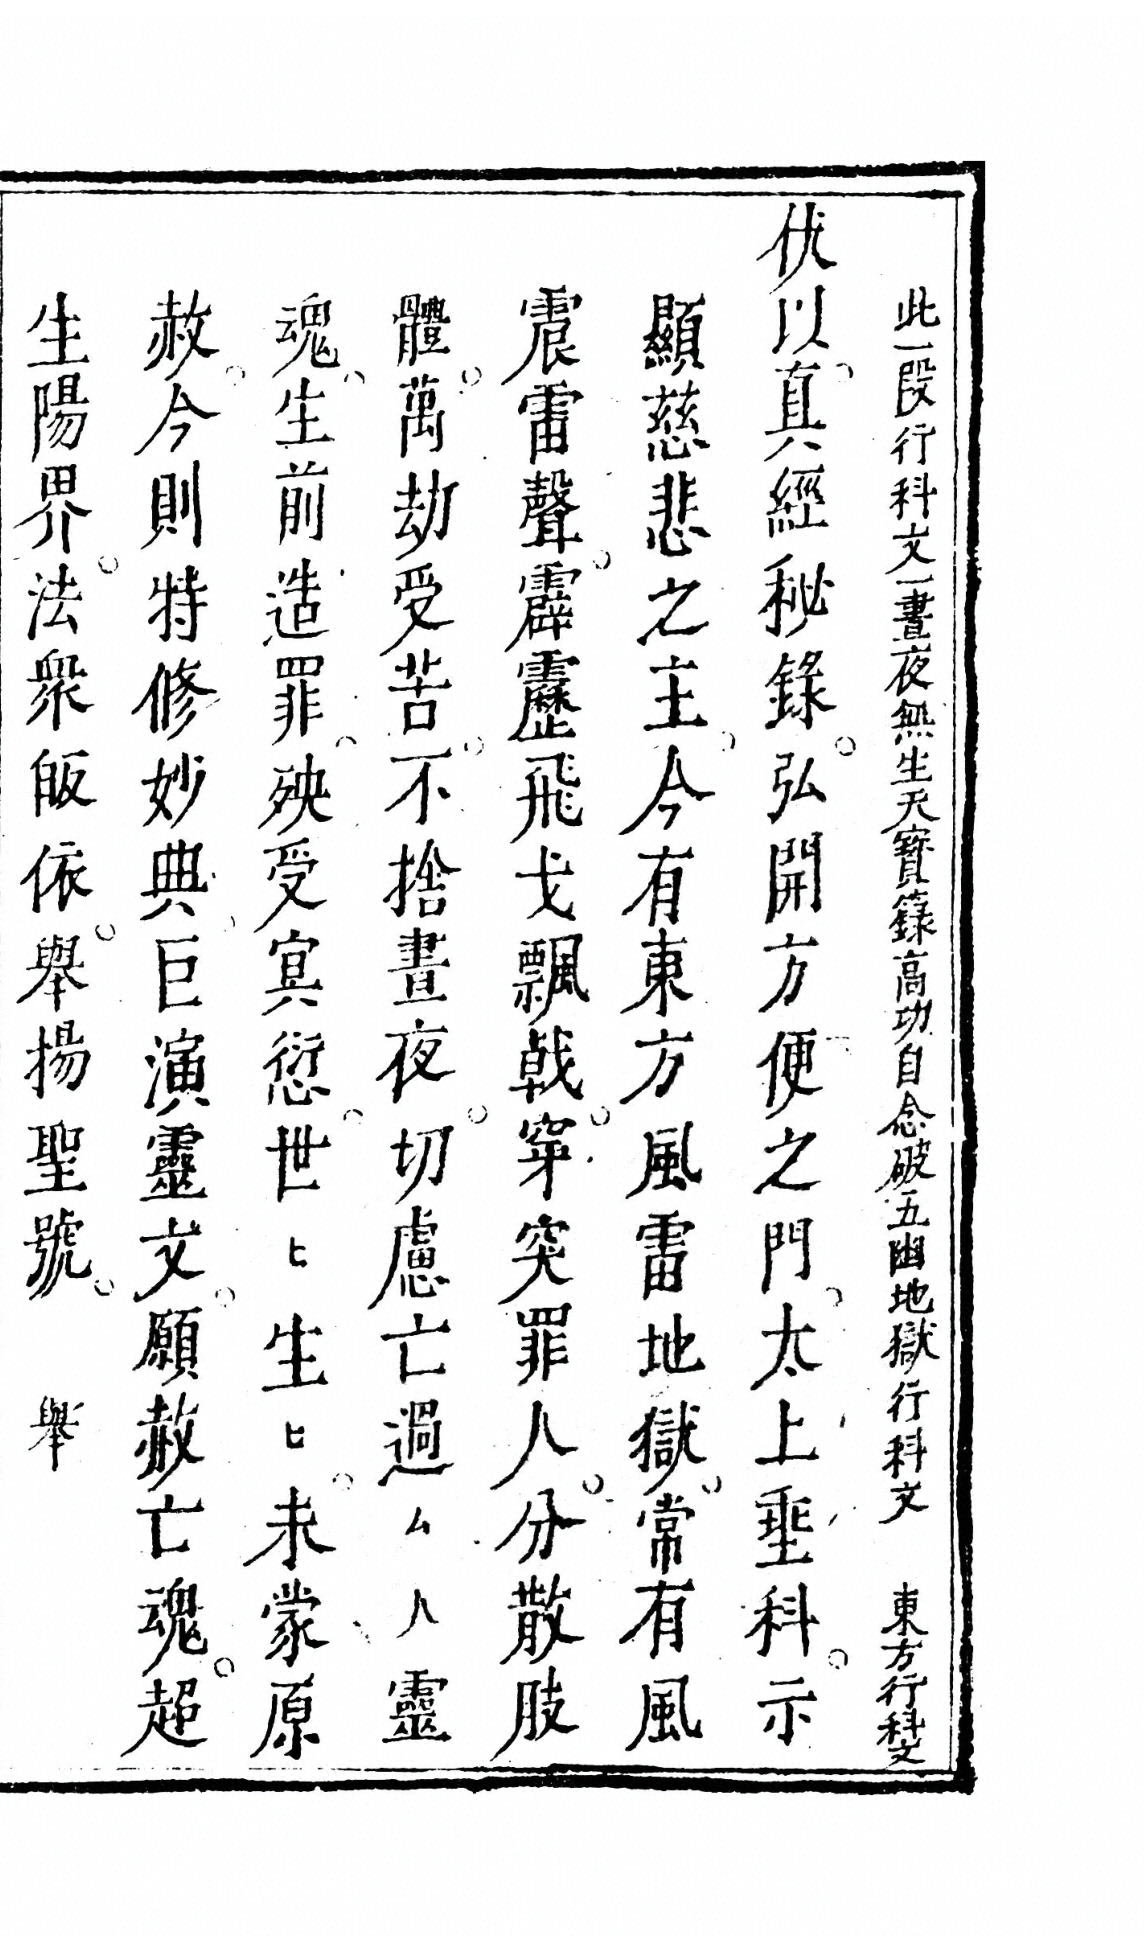 此一段行科文一晝夜無生天寳籙高功自念破五幽地獄行科文　東方行科文
伏以真經秘錄弘開方便之門太上聖科示
顯慈悲之主今有東方風雷地獄常有風
震雷聲霹靂飛戈飄戟穿突罪人分散肢
體萬劫受苦不捨晝夜切慮亡過ㄙ人靈
魂生前造罪殃受㝠愆世〻生〻未蒙原
赦今則特修妙典巨演靈文願赦亡魂超
生陽界法眾皈依舉揚聖號　舉